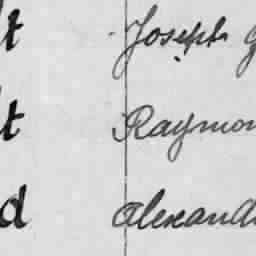 t Joseph G
t Raymon
d Alexand